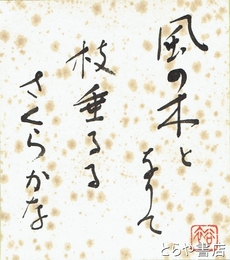 風の木と
なりて
枝垂るる
さくらかな
とらや書店